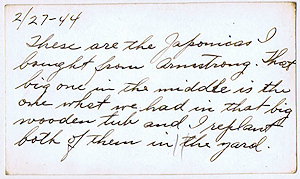 2/27-44
These are the Japonicas I
bought from Armstrong. That
big one in the middle is the
one what we had in that big
wooden tub and I replant
both of them in the yard.